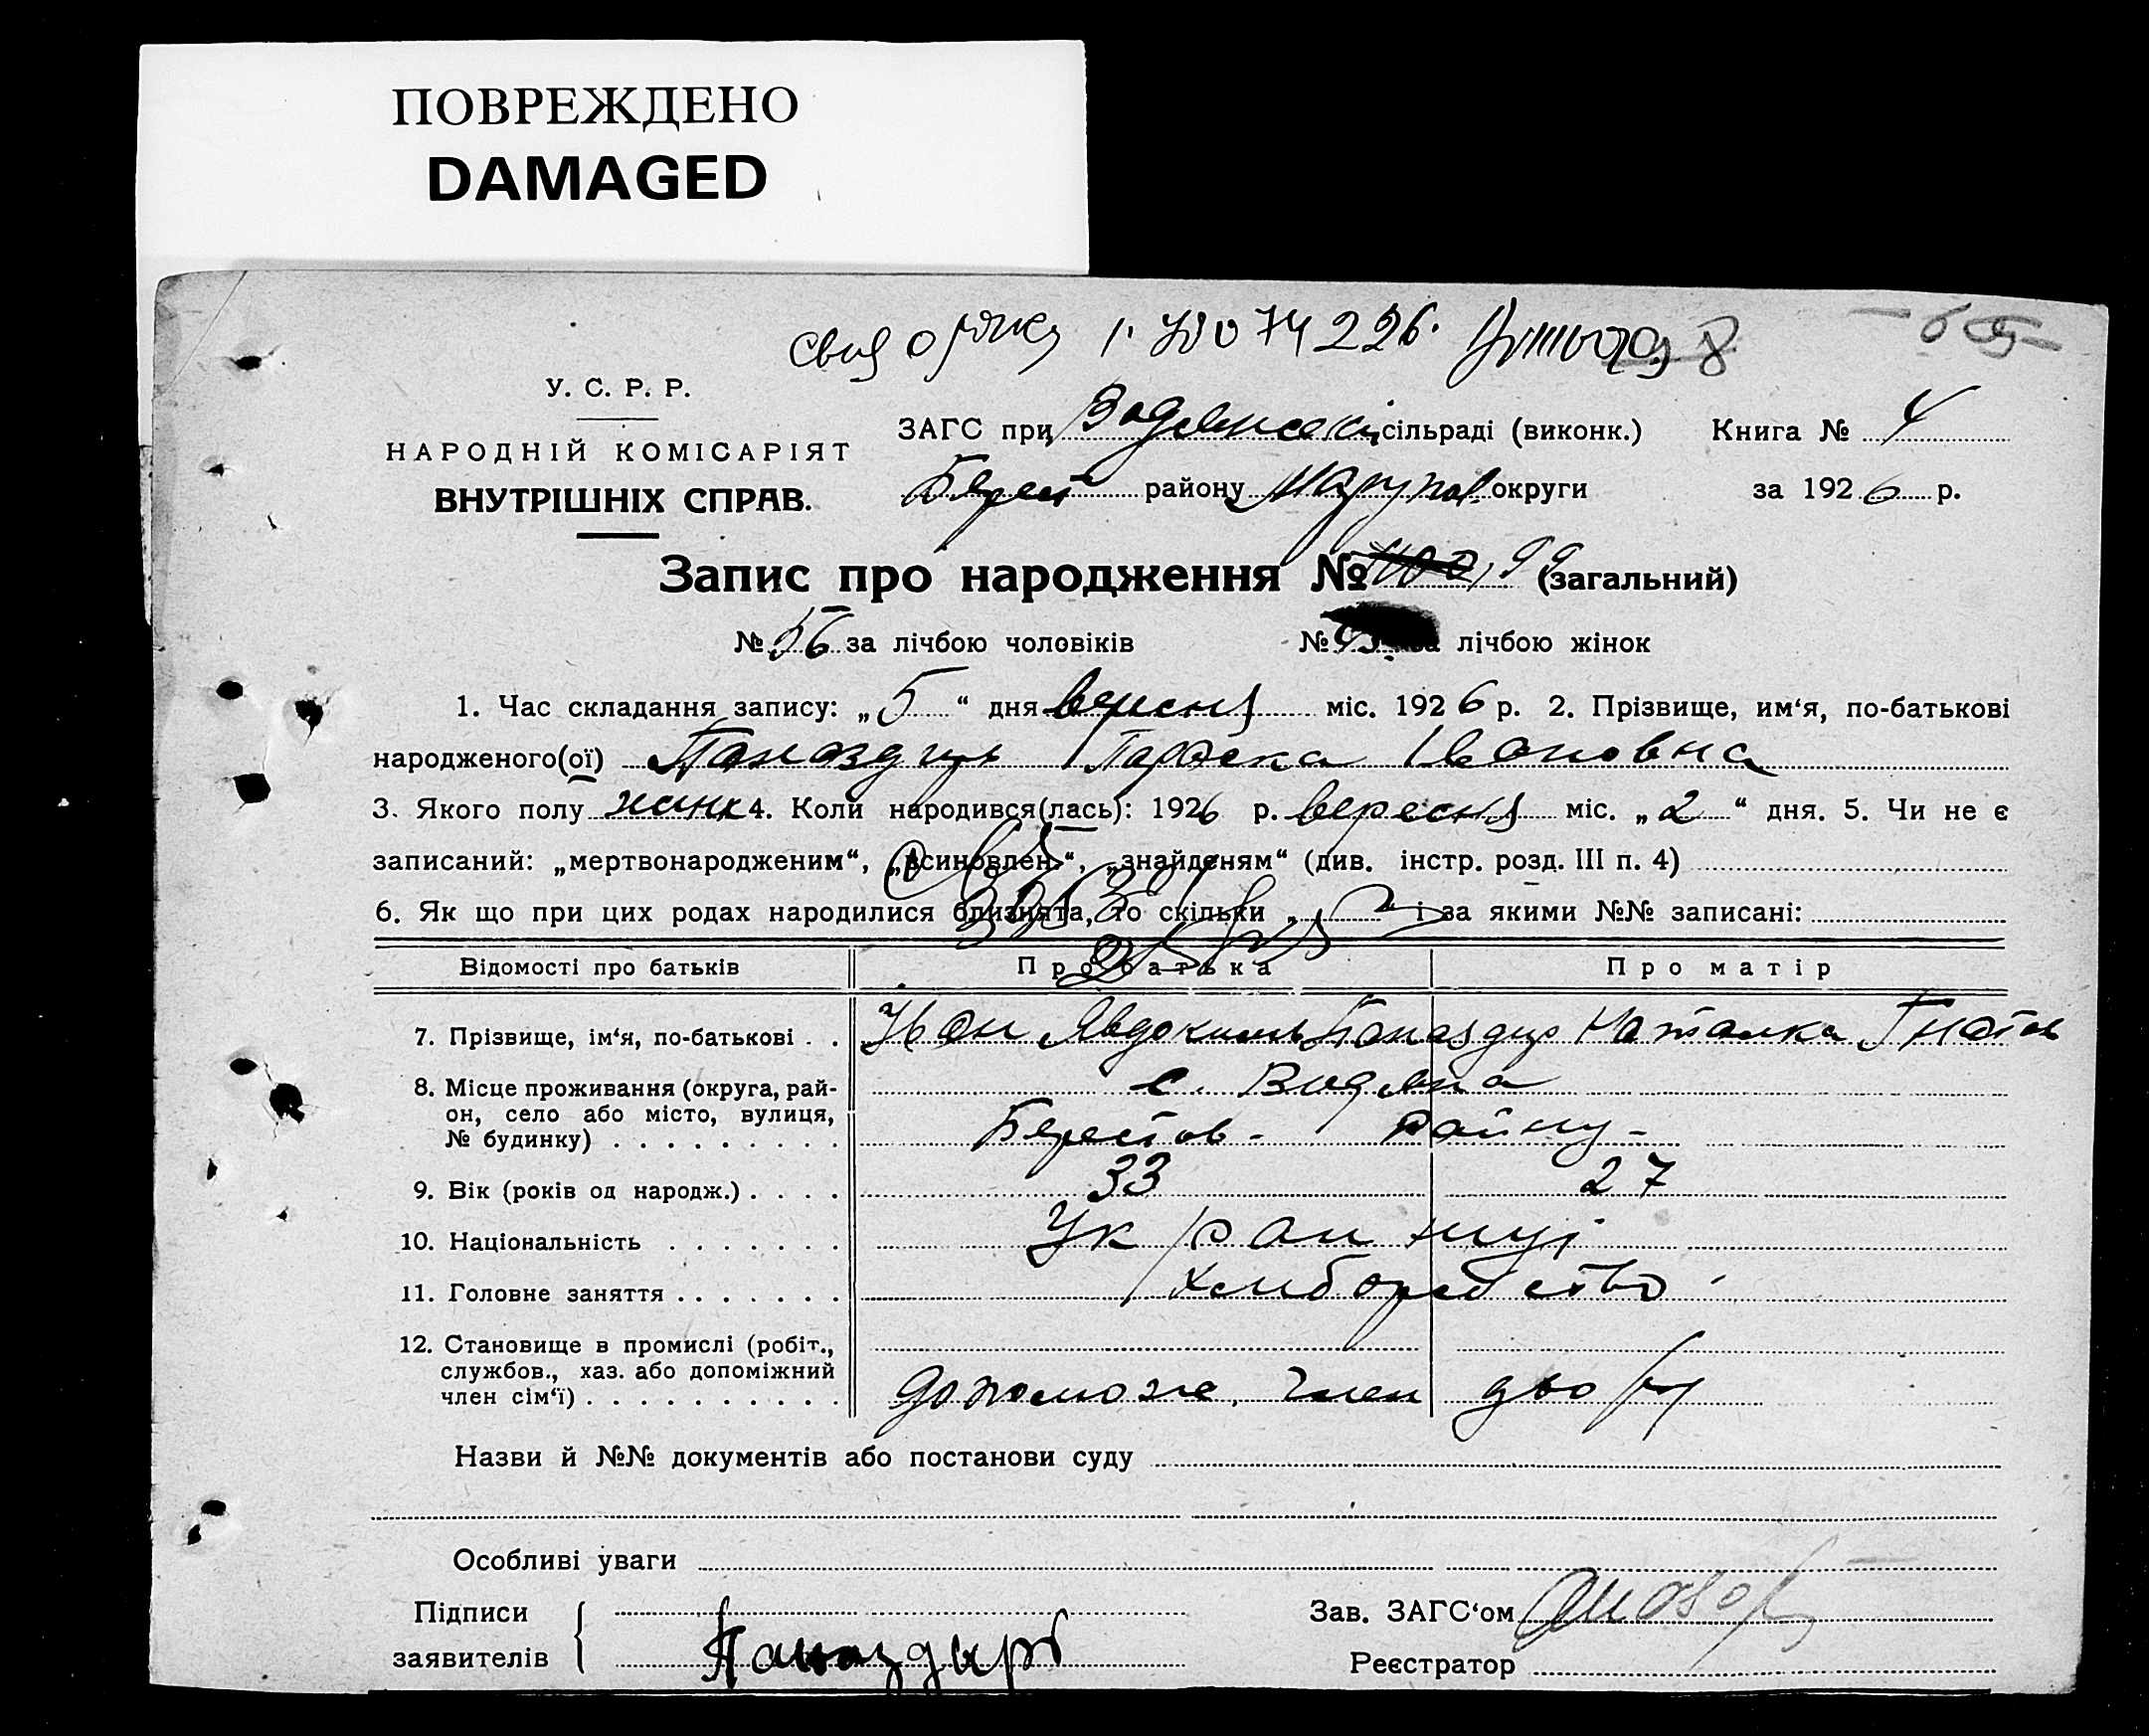 ПОВРЕЖДЕНО
DAMAGED
У. С. Р. Р.
НАРОДНІЙ КОМІСАРІЯТ
ВНУТРІШНІХ СПРАВ.
ЗАГС при сільраді (виконк.) Книга № 4
Берест району округи за 1926 р.
Запис про народження № 99 (загальний)
№ 56 за лічбою чоловіків № лічбою жінок
1. Час складання запису: „5“ дня вересня міс. 1926 р. 2. Прізвище, им‘я, по-батькові
народженого(ої) Параска Івановна
3. Якого полу жинк 4. Коли народився(лась): 1926 р. вересня міс. „2“ дня. 5. Чи не є
записаний: „мертвонародженим“, „всиновлен.“, „знайденям“ (див. інстр. розд. III п. 4)
6. Як що при цих родах народилися близнята, то скільки „ “ і за якими №№ записані:
Відомості про батьків Про батька Про матір
7. Прізвище, ім‘я, по-батькові . . Иван Явдокимъ Наталка Гнатов
8. Місце проживання (округа, рай-
он, село або місто, вулиця,
№ будинку) . . . . . . . . . Берестов- району-
9. Вік (років од народж.) . . . . 33 27
10. Національність . . . . . . . Украинці
11. Головне заняття . . . . . . . хлиборобство
12. Становище в промислі (робіт.,
службов., хаз. або допоміжний
член сім‘ї) . . . . . . . . . . допоможе. член двору
Назви й №№ документів або постанови суду
Особливі уваги
Підписи
заявителів
Зав. ЗАГС‘ом
Реєстратор